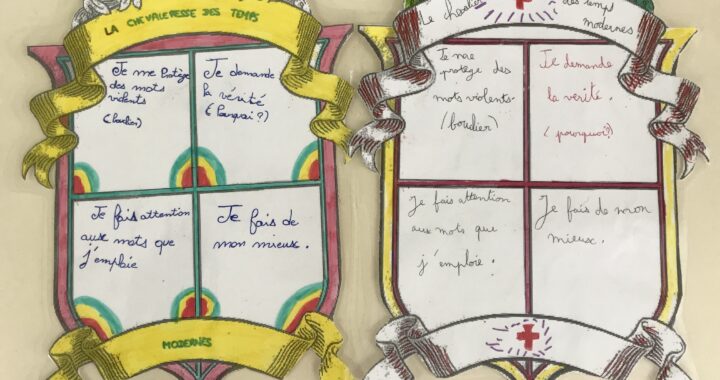 LA CHEVALERESSE DES TEMPS
Je me Protège
des mots
violents
(bouclier)
Je demande
la vérité
(Pourquoi?)
Je fais attention
aux mots que
j'emploie
Je fais de
mon mieux.
MODERNES
Le chevalier
des temps
modernes
Je me
protège des
mots violents
(boudier)
Je demande
la verité.
(pourquoi?)
Je fais attention
aux mots que
j'emploie.
Je fais de mon
mieux.